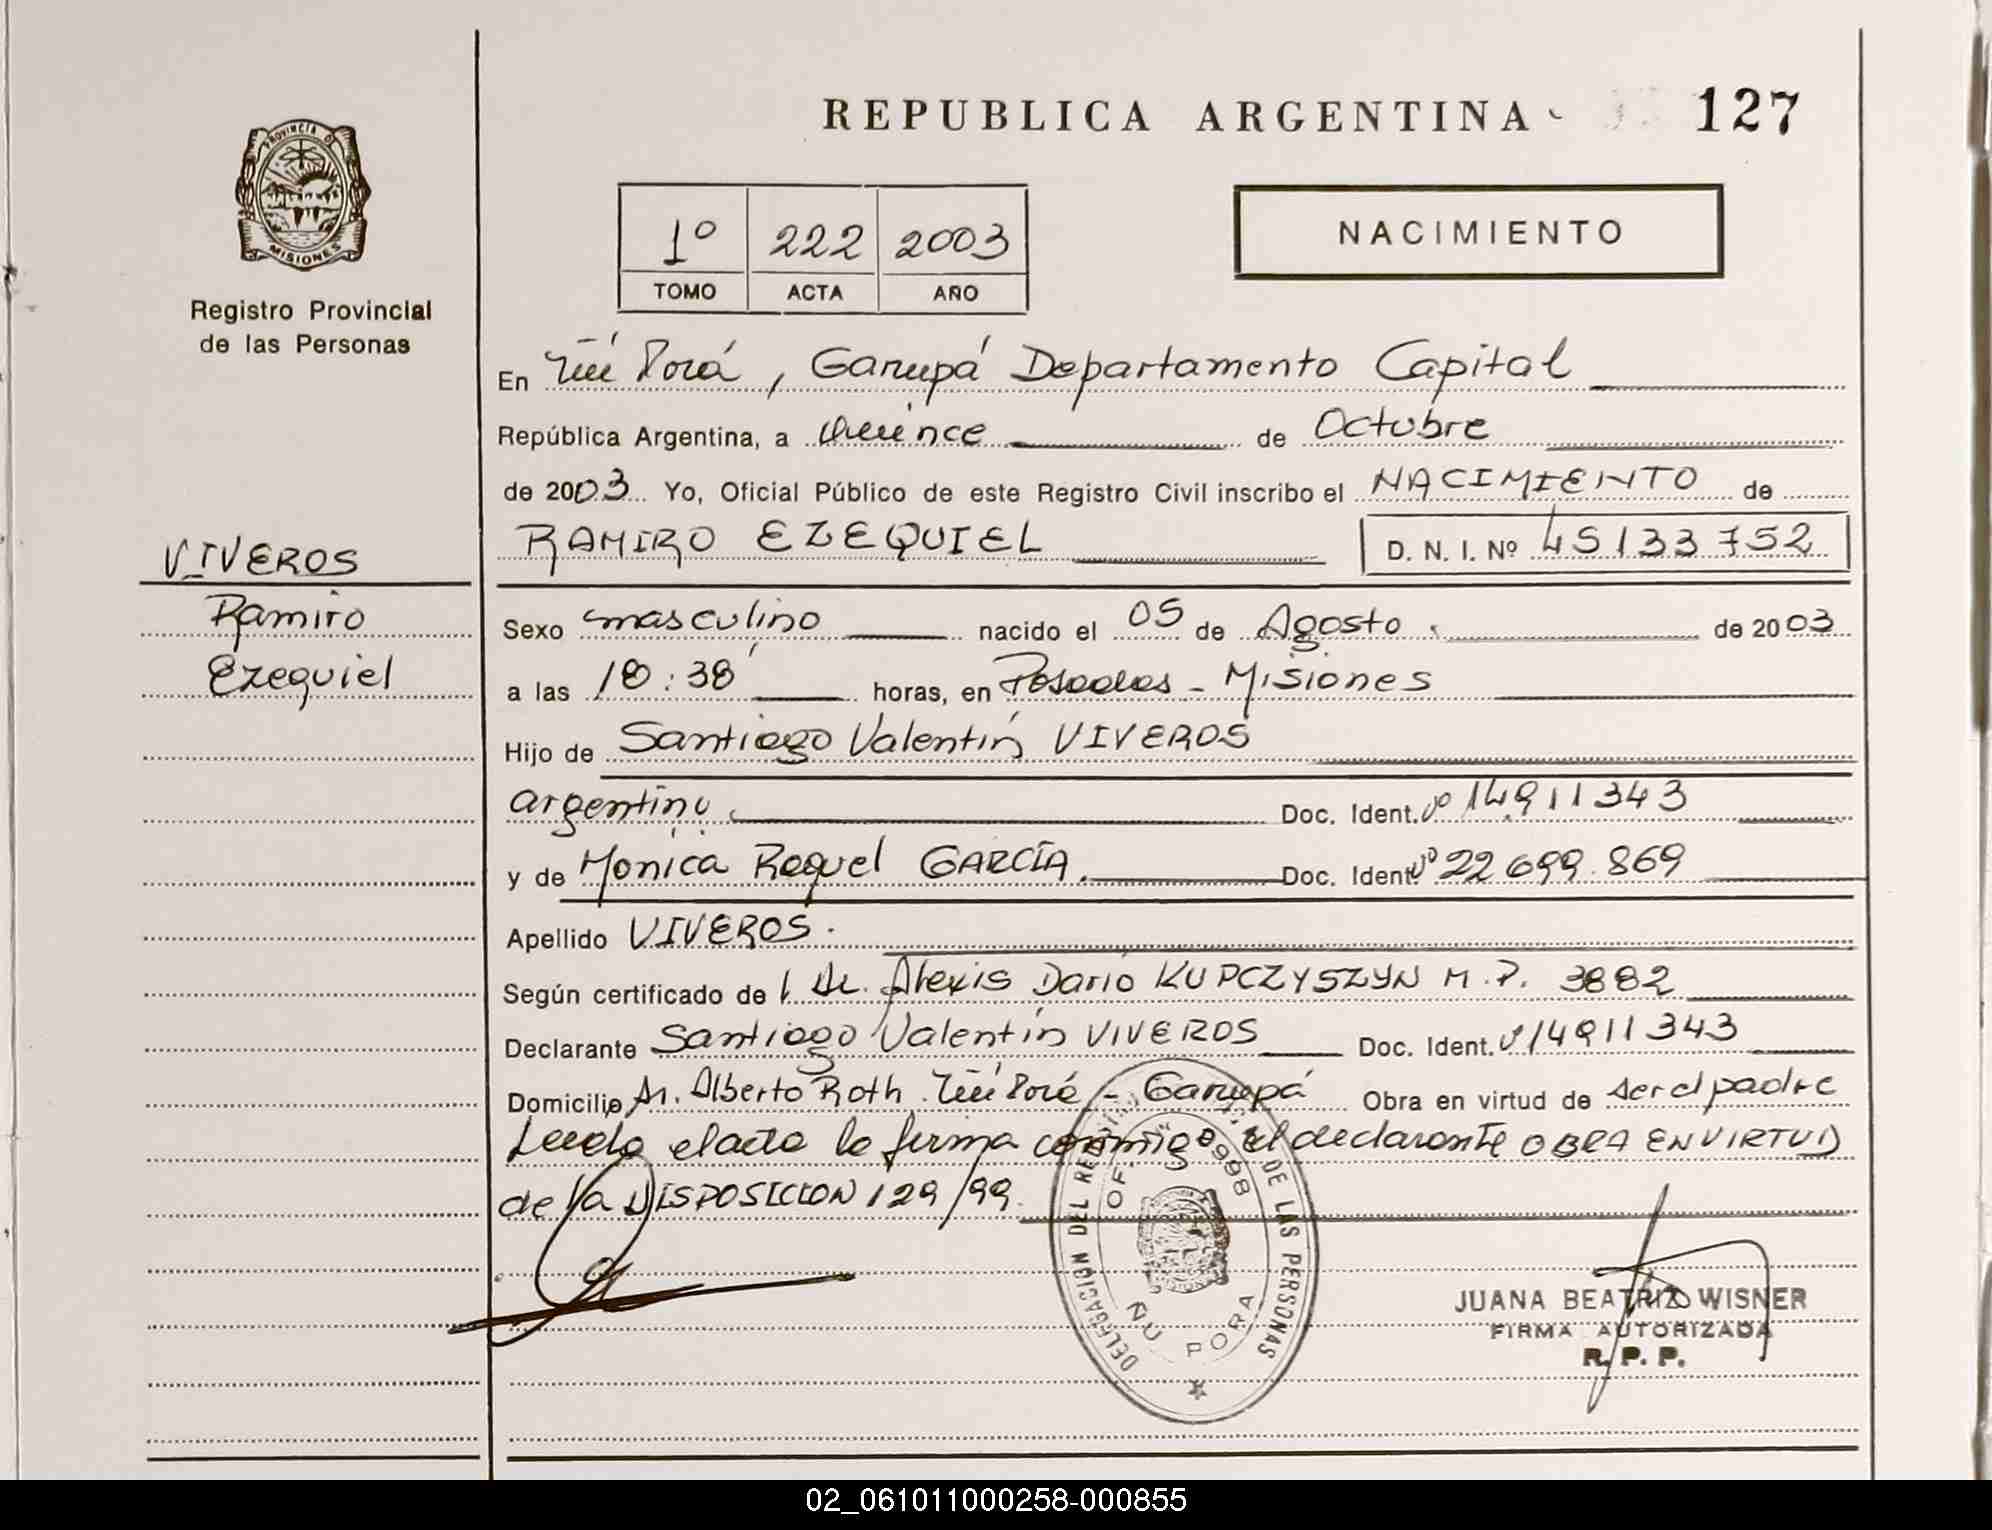 REPUBLICA ARGENTINA 127
PROVINCIA DE
MISIONES
Registro Provincial
de las Personas
1º 222 2003
TOMO ACTA AÑO
NACIMIENTO
En Ñu Porá, Garupá Departamento Capital
República Argentina, a Quince de Octubre
de 2003 Yo, Oficial Público de este Registro Civil inscribo el NACIMIENTO de
RAMIRO EZEQUIEL D. N. I. Nº 45133752
VIVEROS
Ramiro
Ezequiel
Sexo masculino nacido el 05 de Agosto de 2003
a las 18:38 horas, en Posadas - Misiones
Hijo de Santiago Valentín VIVEROS
argentino Doc. Ident. Nº 14911343
y de Mónica Raquel GARCÍA. Doc. Ident. Nº 22699.869
Apellido VIVEROS.
Según certificado de Dr. Alexis Darío KUPCZYSZYN M.P. 3882
Declarante Santiago Valentín VIVEROS Doc. Ident. Nº 14911343
Domicilio Av. Alberto Roth. Ñu Porá - Garupá Obra en virtud de ser el padre
Leída el acta la firma conmigo el declarante OBRA EN VIRTUD
de la DISPOSICION 129/99.
DELEGACION DEL REGISTRO DE LAS PERSONAS
OF. 998
ÑU PORA
JUANA BEATRIZ WISNER
FIRMA AUTORIZADA
R. P. P.
02_061011000258-000855